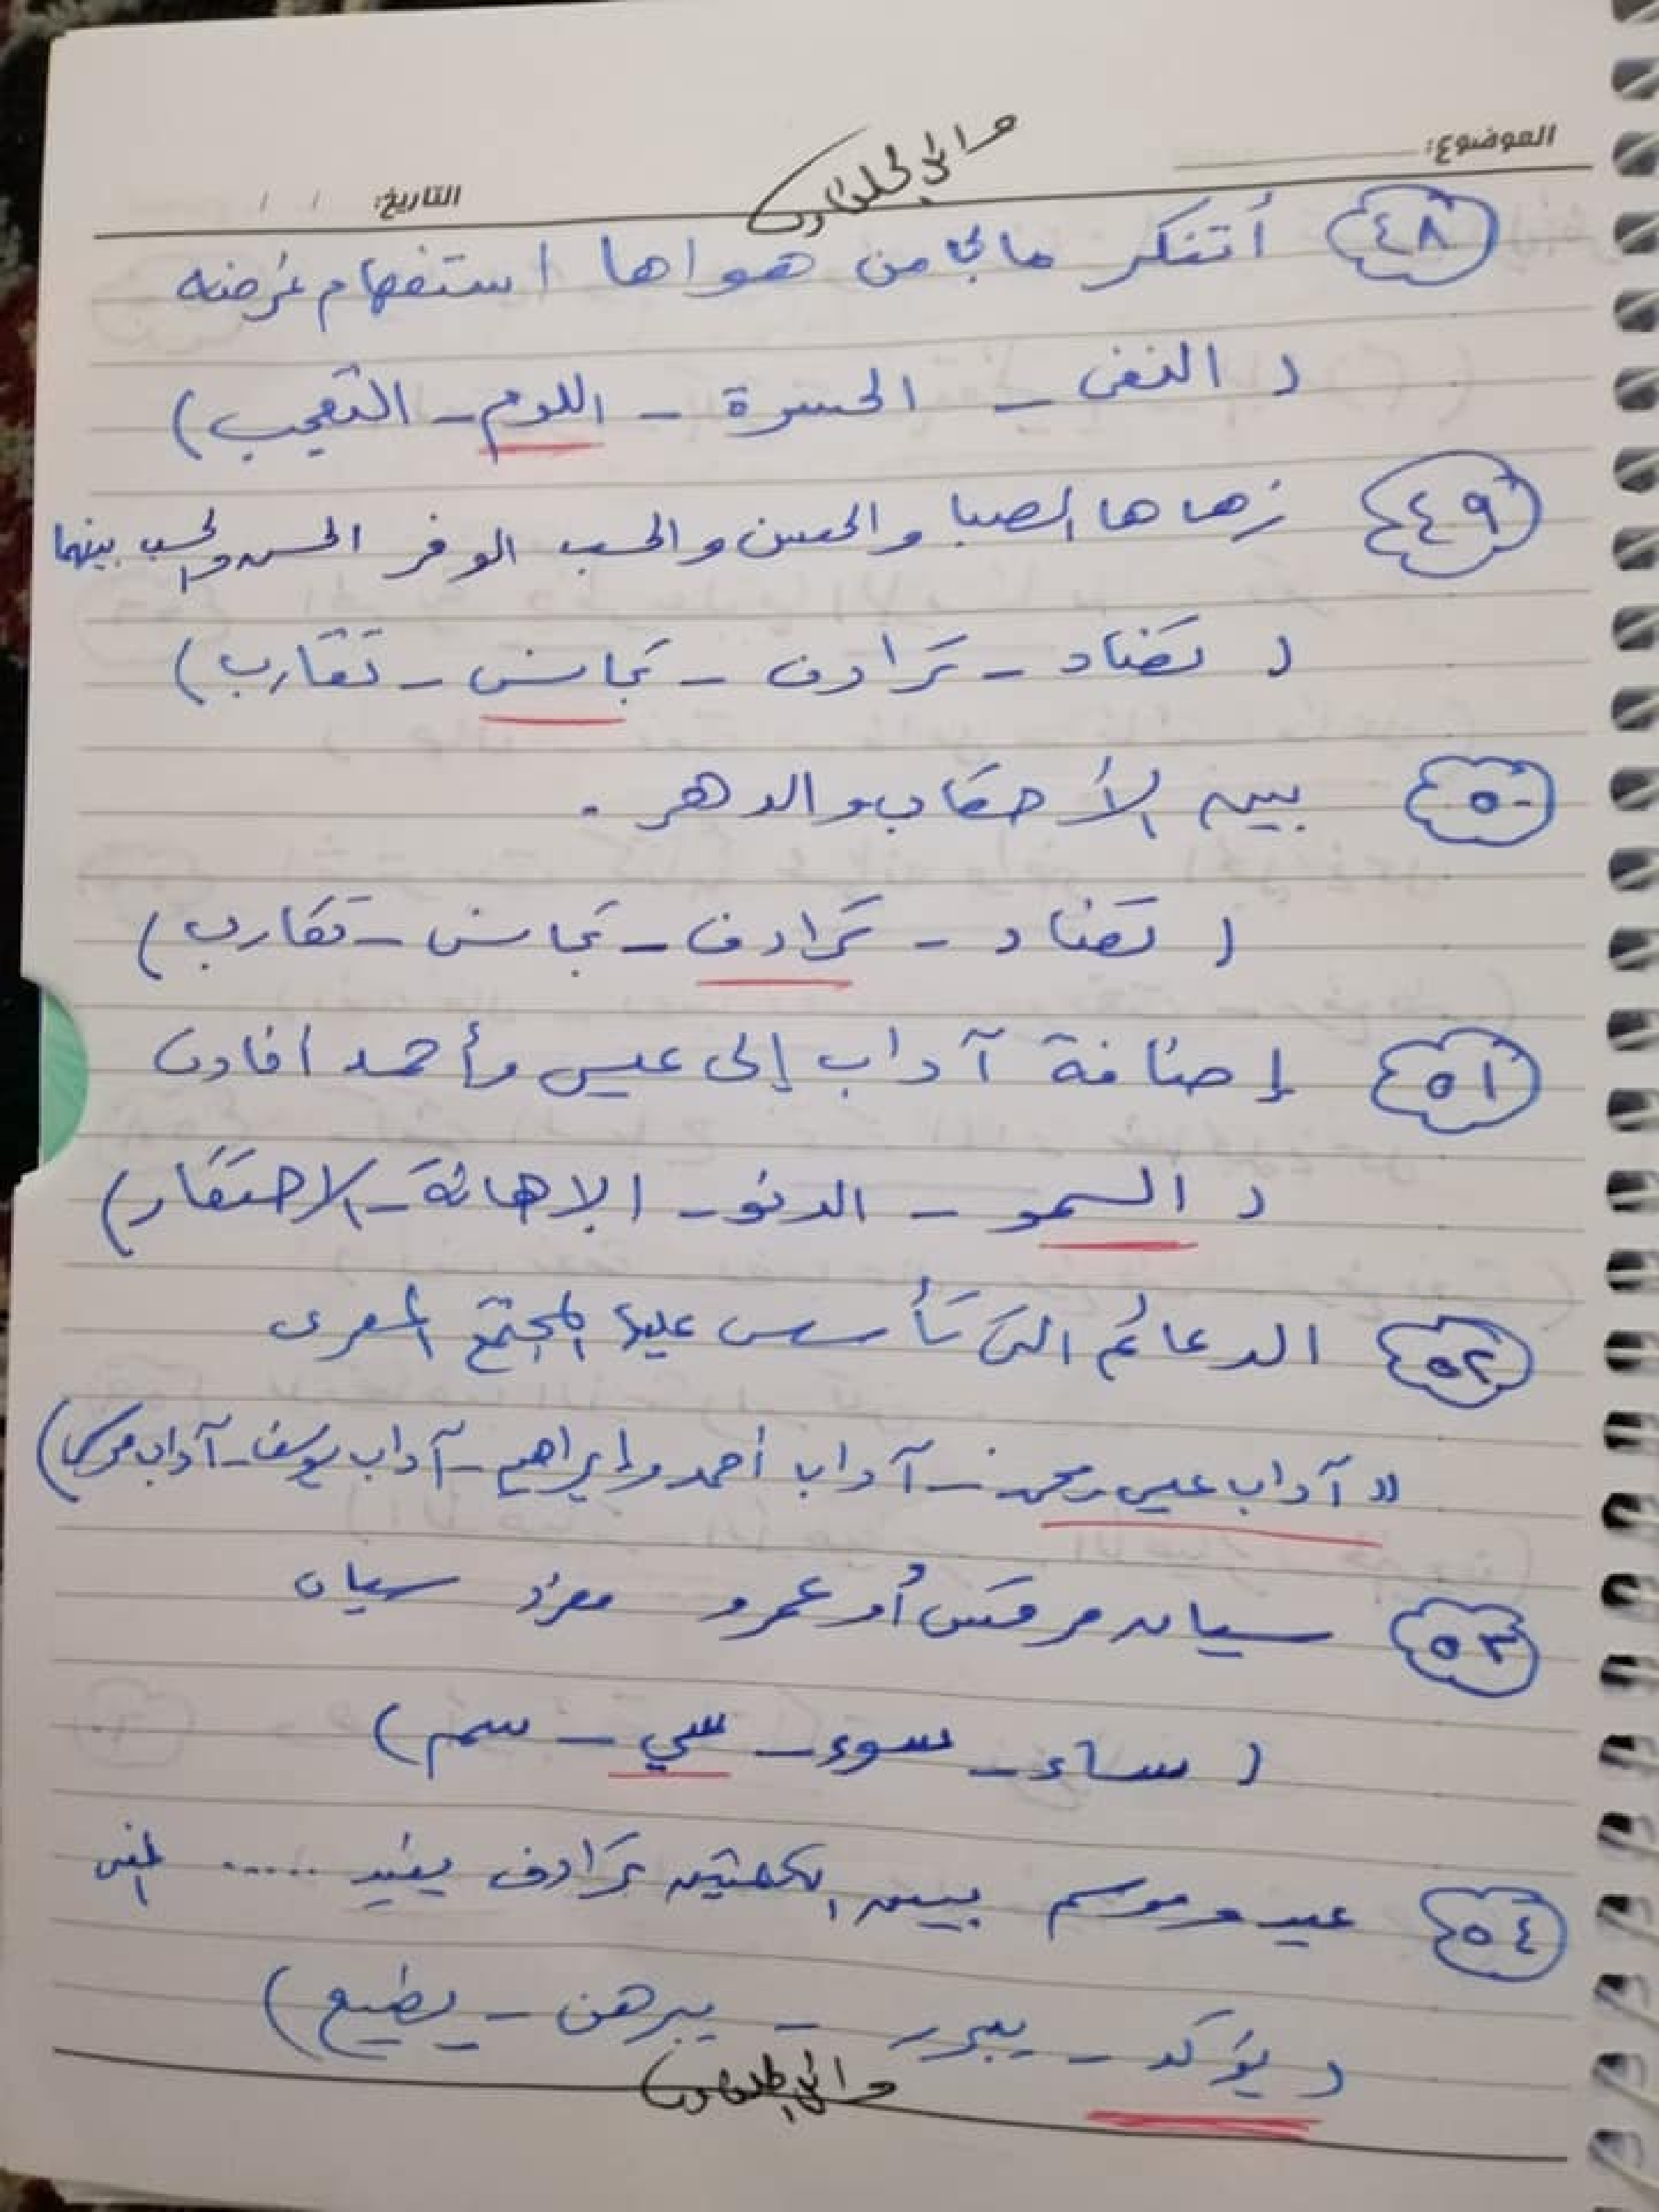 الموضوع:
التاريخ: / /
٤٨ أتنكر ما بي من هواها استفهام غرضه
( النفى - الحسرة - اللوم - التعجب )
٤٩ زهاها الصبا والحسن والحسب الوفر الحسن والحسب بينهما
( تضاد - ترادف - تجانس - تقارب )
٥٠ بين الأحقاب والدهر .
( تضاد - ترادف - تجانس - تقارب )
٥١ إضافة آداب إلى عيسى وأحمد افادت
( السمو - الدنو - الإهانة - الاحتقار )
٥٢ الدعائم التى تأسس عليها المجتمع المصرى
( آداب عيسى ومحمد - آداب أحمد وإبراهيم - آداب يوسف - آداب موسى )
٥٣ سيان مرقس أو عمرو مفرد سيان
( ساء - سوء - سي - سم )
٥٤ عيد وموسم بين الكلمتين ترادف يفيد ..... المعنى
( يؤكد - يبرر - يبرهن - يطيع )